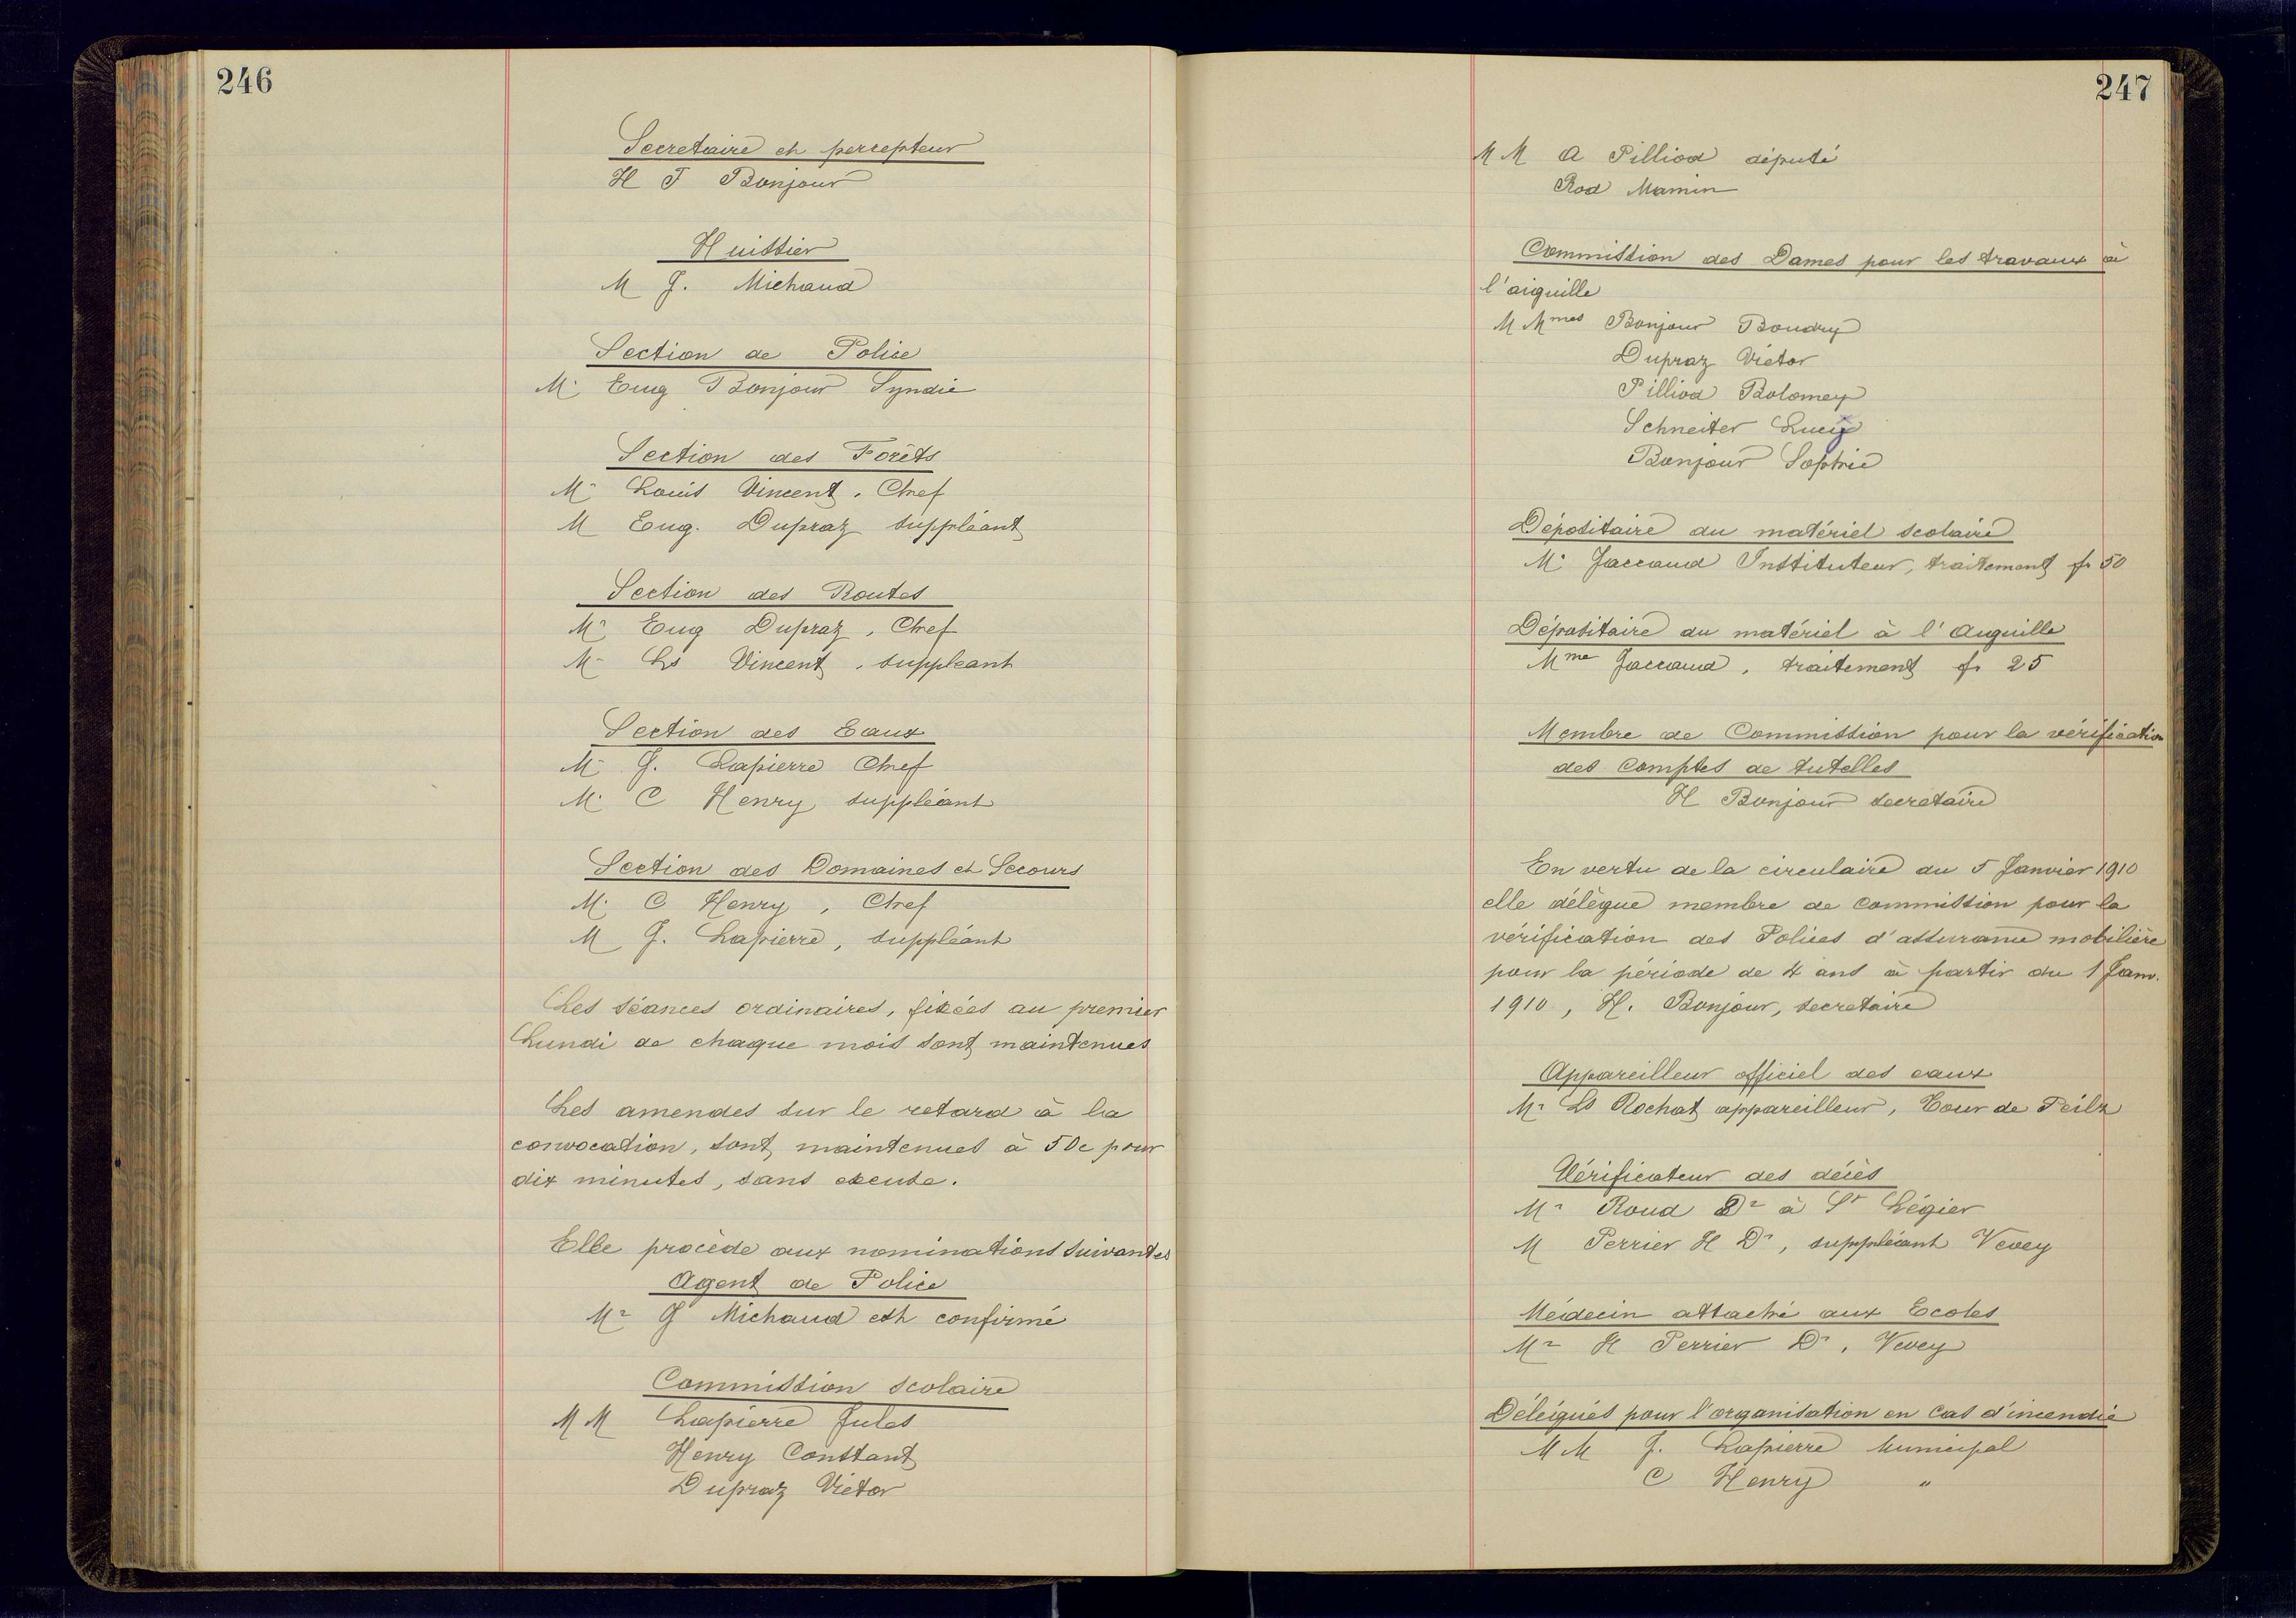 246
Secretaire et percepteur
H F Bonjour
Huissier
M J. Michaud
Section de Police
Mr Eug Bonjour Syndic
Section des Forêts
Mr Louis Vincent, Chef
M Eug. Dupraz suppléant
Section des Routes
Mr Eug Dupraz, Chef
Mr Ls Vincent, suppleant
Section des Eaux
Mr J. Lapierre Chef
Mr C Henry suppléant
Section des Domaines et Secours
Mr C Henry, Chef
M J. Lapierre, suppléant
Les séances ordinaires, fixées au premier
Lundi de chaque mois sont maintenues
Les amendes sur le retard à la
convocation, sont maintenues à 50c pour
dix minutes, sans excuse.
Elle procède aux nominations suivantes
Agent de Police
Mr J Michaud est confirmé
Commission scolaire
MM Lapierre Jules
Henry Constant
Dupraz Victor
247
MM A Pilliod député
Rod Mamin
Commission des Dames pour les travaux à
l'aiguille
MMmes Bonjour Boudry
Dupraz Victor
Pilliod Bolomey
Schneiter Lucy
Bonjour Sophie
Dépositaire du matériel scolaire
Mr Jaccaud Instituteur, traitement fr 50
Dépositaire du matériel à l'Aiguille
Mme Jaccaud, traitement fr 25
Membre de Commission pour la vérification
des comptes de tutelles
H Bonjour secretaire
En vertu de la circulaire du 5 Janvier 1910
elle délègue membre de commission pour la
vérification des Polices d'assurance mobilière
pour la période de 4 ans à partir du 1 Janv.
1910, H. Bonjour, secretaire
Appareilleur officiel des eaux
Mr Ls Rochat appareilleur, Tour de Peilz
Vérificateur des décès
Mr Roud Dr à St Légier
M Perrier H Dr, suppléant Vevey
Médecin attaché aux Ecoles
Mr H Perrier Dr, Vevey
Délégués pour l'organisation en cas d'incendie
MM J. Lapierre Municipal
C Henry "